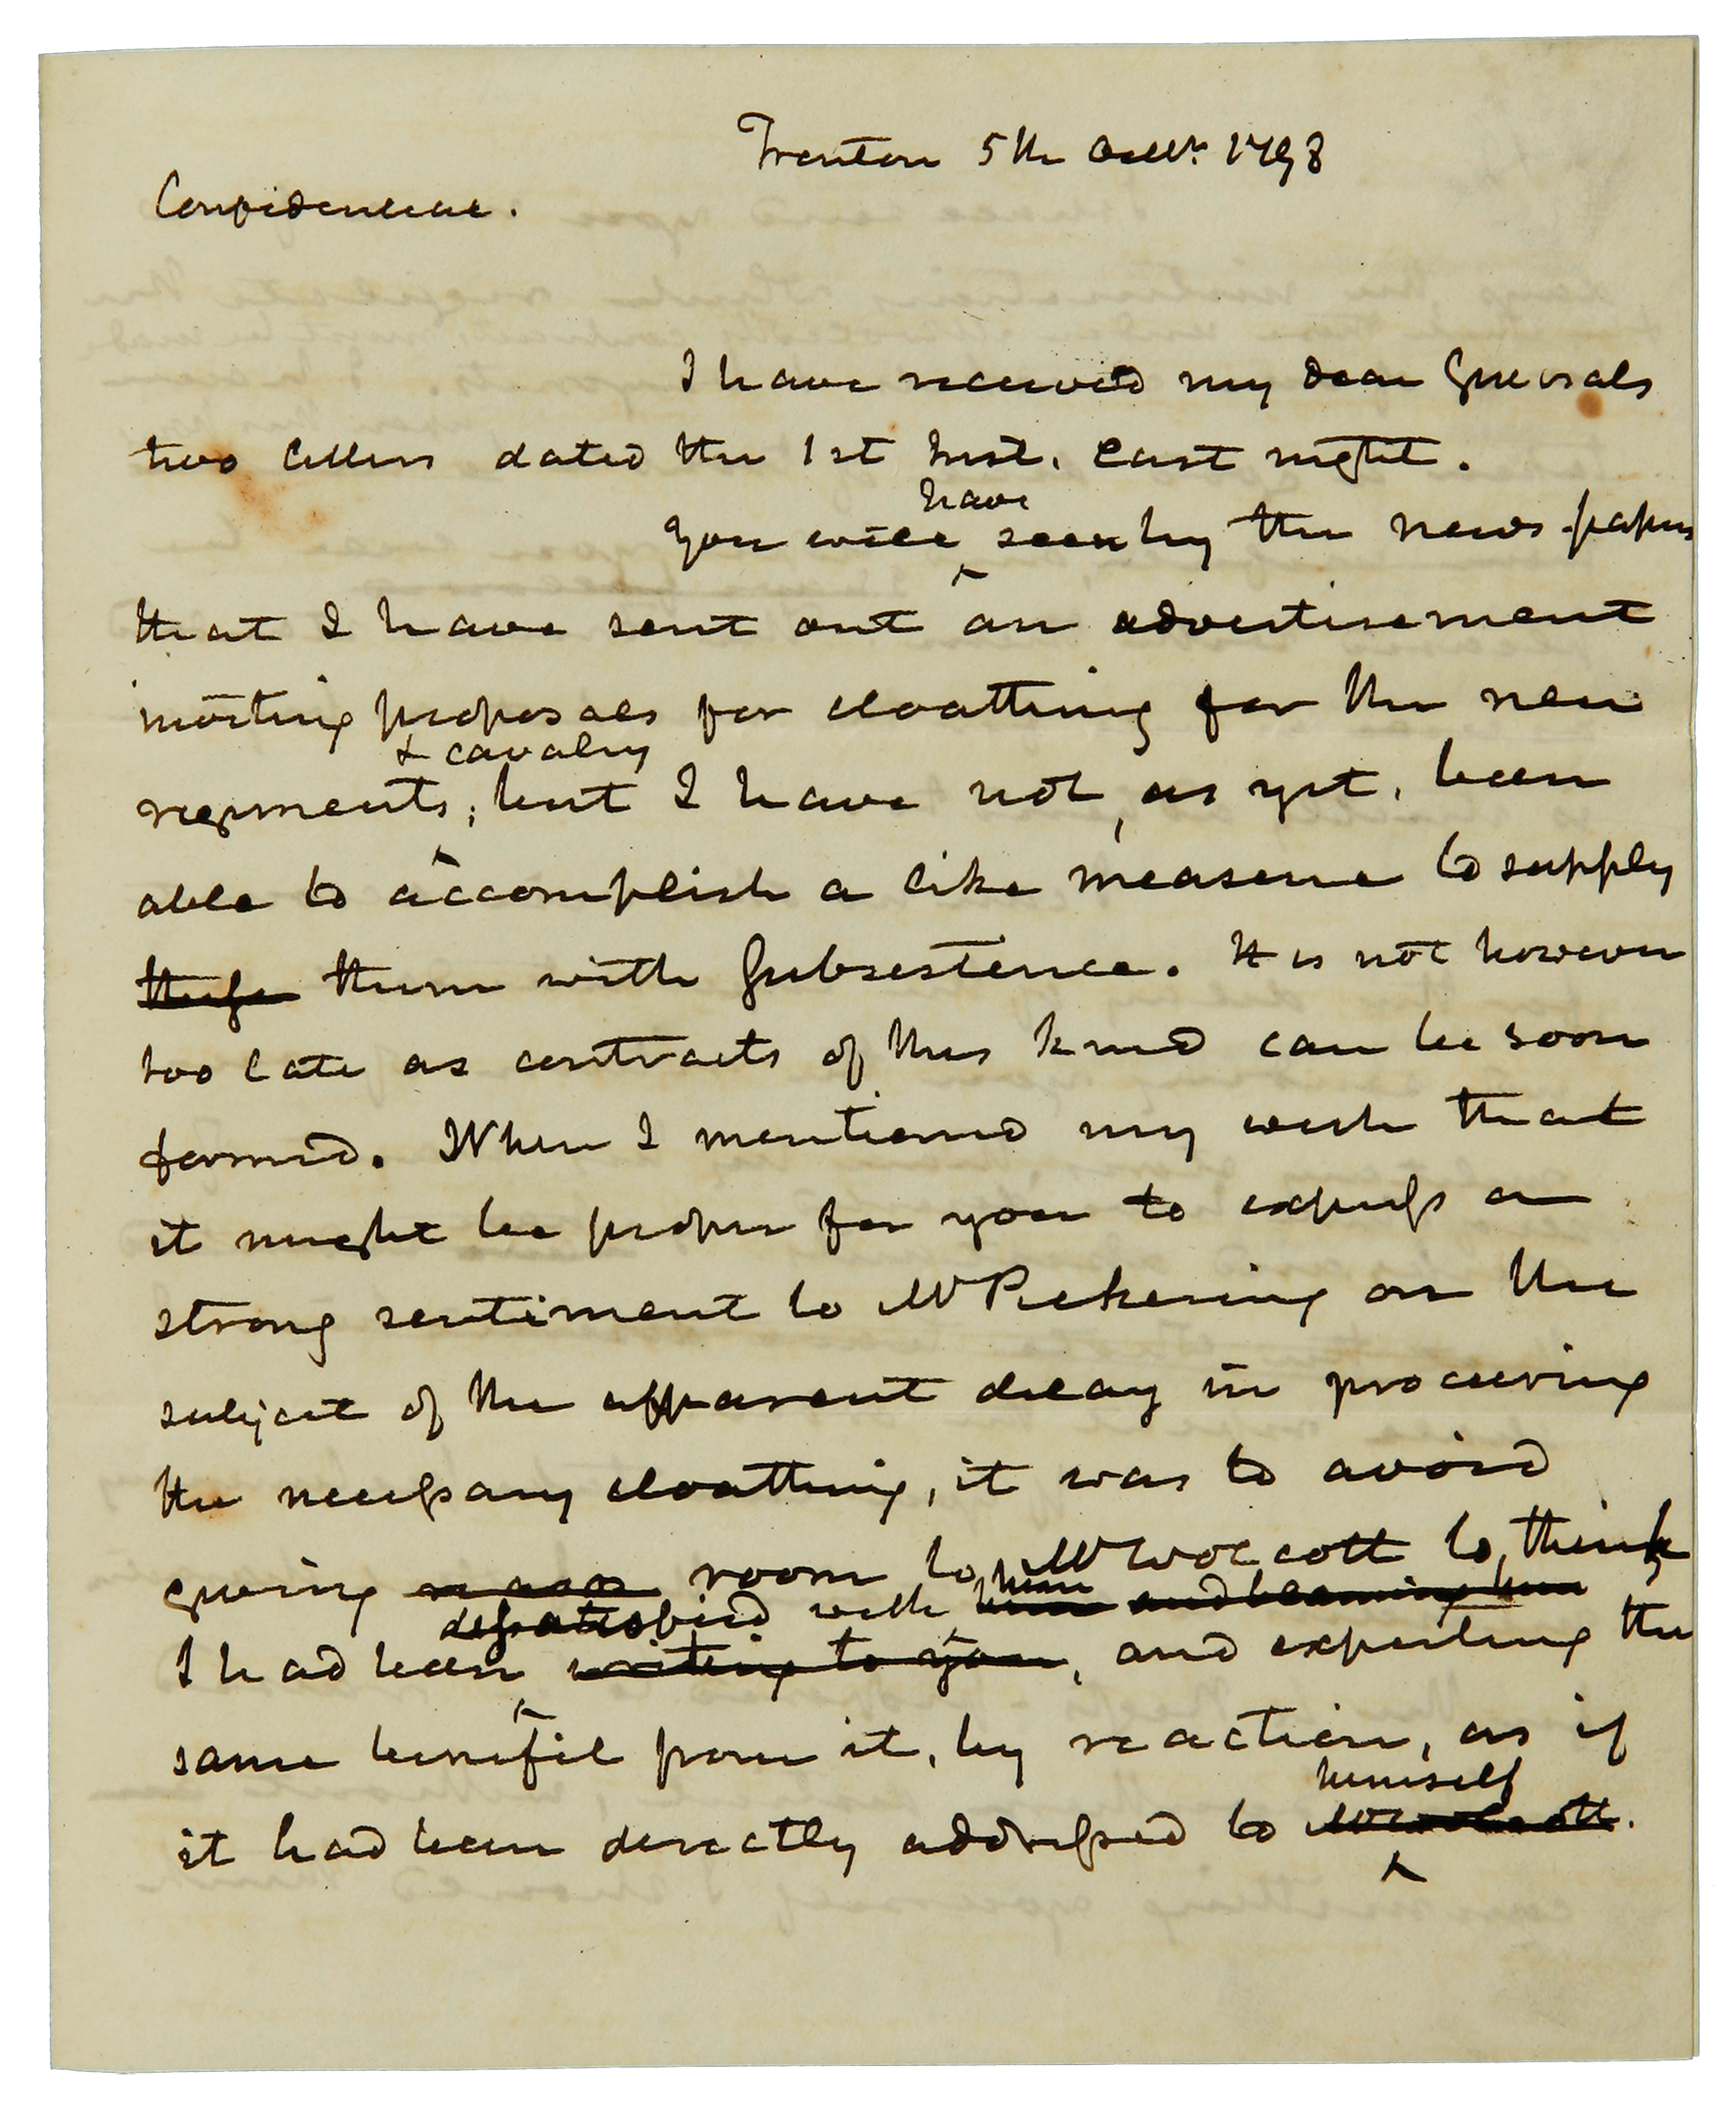 Trenton 5th Octbr. 1798
Confidential.
I have received my dear Generals
two letters dated the 1st Inst. last night.
have
You will seen by the news-papers
that I have sent out an advertisement
inviting proposals for cloathing for the new
& cavalry
regiments; but I have not, as yet, been
able to accomplish a like measure to supply
these them with Subsistence. It is not however
too late as contracts of this kind can be soon
formed. When I mentioned my wish that
it might be proper for you to express a
strong sentiment to Mr Pickering on the
subject of the apparent delay in procuring
the necessary cloathing, it was to avoid
giving reason room to Mr Wolcott to think
dissatisfied with him him and blaming him
I had been writing to you, and expecting the
same benefit from it, by reaction, as if
himself
it had been directly addressed to Mr Wolcott.